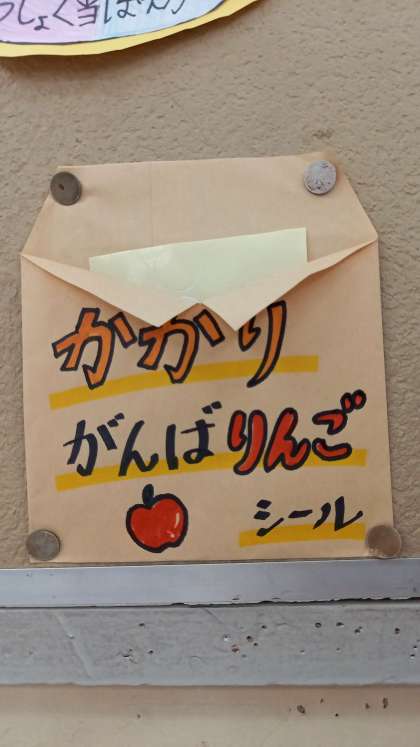 っしょく当ばん
かかり
がんばりんご
シール